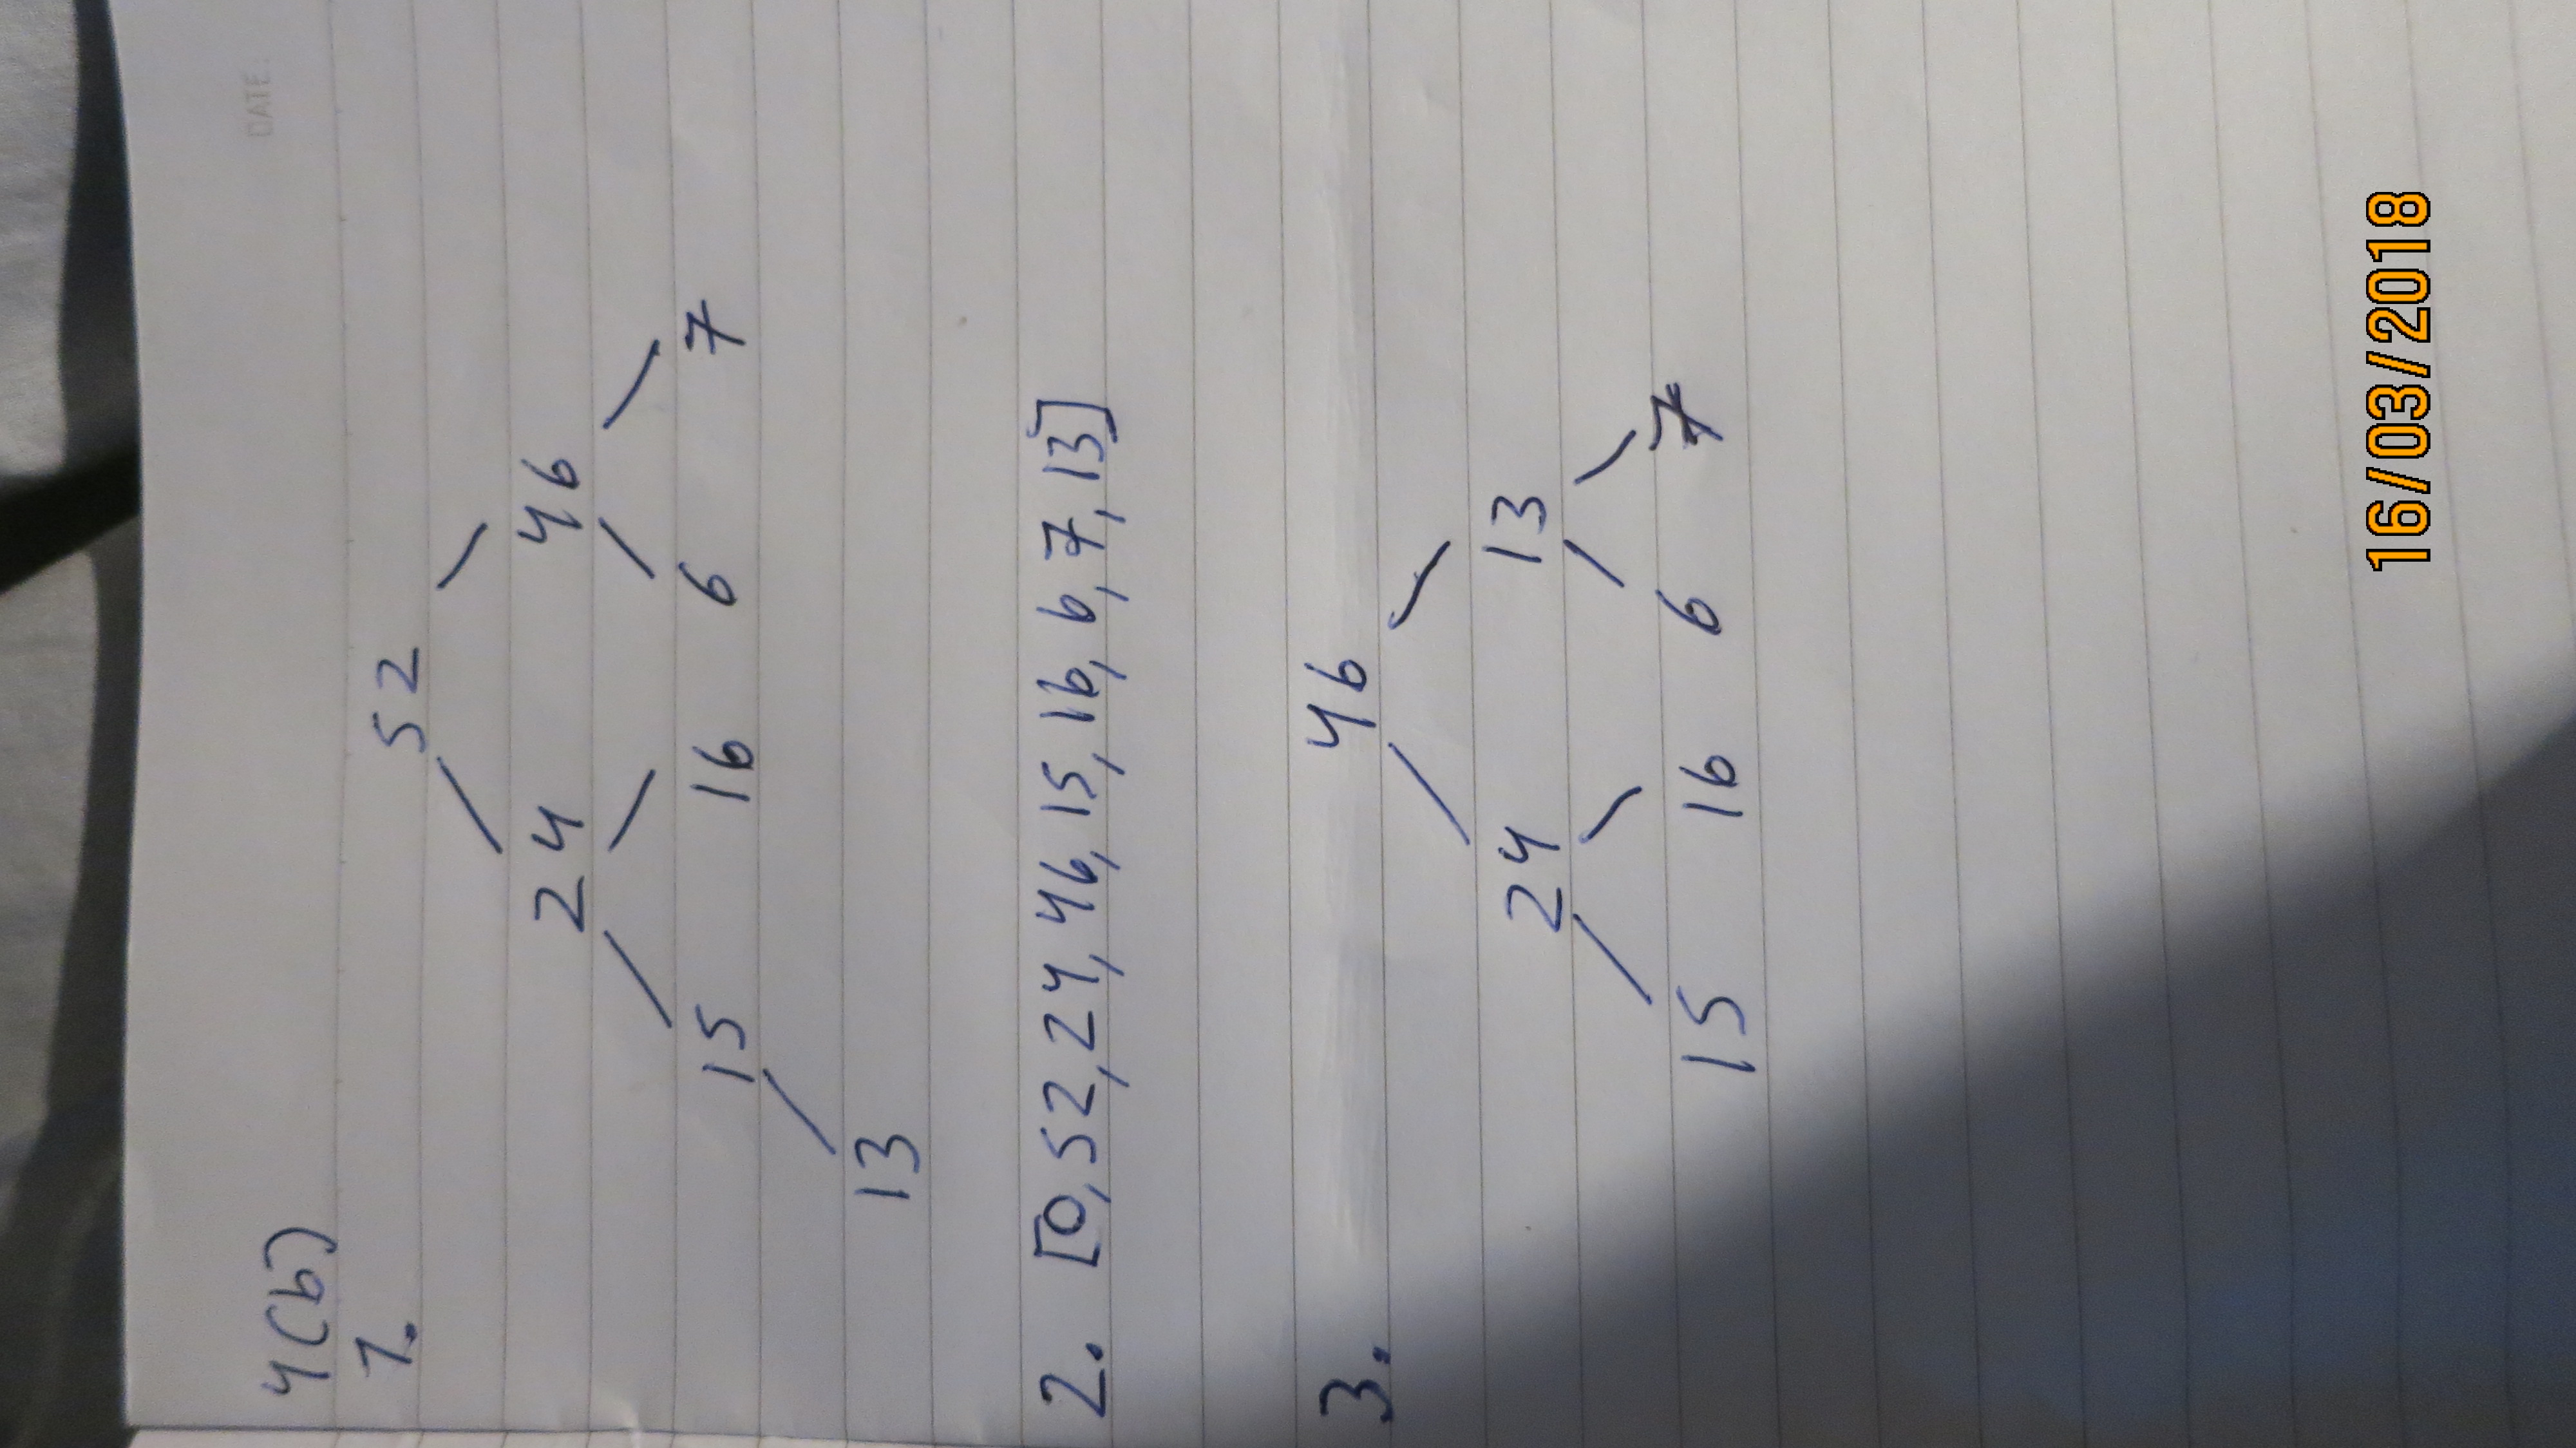 DATE:
4(b)
1. 52
24 46
15 16 6 7
13
2. [0, 52, 24, 46, 15, 16, 6, 7, 13]
3. 46
24 13
15 16 6 7
16/03/2018